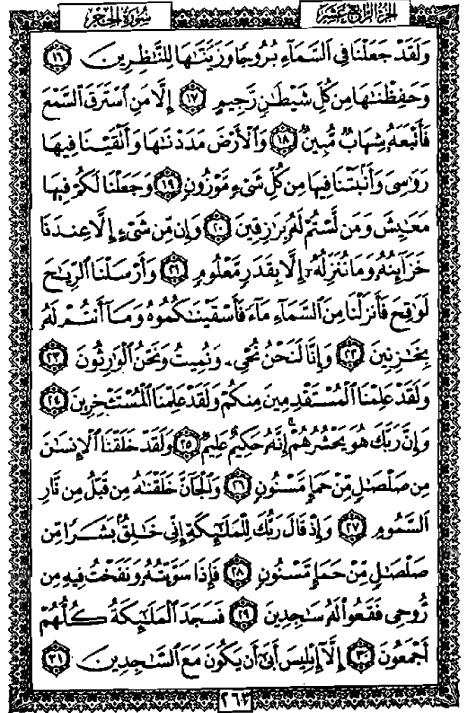 الجزء الرابع عشر
سورة الحجر
وَلَقَدْ جَعَلْنَا فِي ٱلسَّمَآءِ بُرُوجًا وَزَيَّنَّٰهَا لِلنَّٰظِرِينَ ١٦
وَحَفِظْنَٰهَا مِن كُلِّ شَيْطَٰنٍ رَّجِيمٍ ١٧ إِلَّا مَنِ ٱسْتَرَقَ ٱلسَّمْعَ
فَأَتْبَعَهُۥ شِهَابٌ مُّبِينٌ ١٨ وَٱلْأَرْضَ مَدَدْنَٰهَا وَأَلْقَيْنَا فِيهَا
رَوَٰسِيَ وَأَنۢبَتْنَا فِيهَا مِن كُلِّ شَيْءٍ مَّوْزُونٍ ١٩ وَجَعَلْنَا لَكُمْ فِيهَا
مَعَٰيِشَ وَمَن لَّسْتُمْ لَهُۥ بِرَٰزِقِينَ ٢٠ وَإِن مِّن شَيْءٍ إِلَّا عِندَنَا
خَزَآئِنُهُۥ وَمَا نُنَزِّلُهُۥٓ إِلَّا بِقَدَرٍ مَّعْلُومٍ ٢١ وَأَرْسَلْنَا ٱلرِّيَٰحَ
لَوَٰقِحَ فَأَنزَلْنَا مِنَ ٱلسَّمَآءِ مَآءً فَأَسْقَيْنَٰكُمُوهُ وَمَآ أَنتُمْ لَهُۥ
بِخَٰزِنِينَ ٢٢ وَإِنَّا لَنَحْنُ نُحْيِۦ وَنُمِيتُ وَنَحْنُ ٱلْوَٰرِثُونَ ٢٣
وَلَقَدْ عَلِمْنَا ٱلْمُسْتَقْدِمِينَ مِنكُمْ وَلَقَدْ عَلِمْنَا ٱلْمُسْتَـْٔخِرِينَ ٢٤
وَإِنَّ رَبَّكَ هُوَ يَحْشُرُهُمْ ۚ إِنَّهُۥ حَكِيمٌ عَلِيمٌ ٢٥ وَلَقَدْ خَلَقْنَا ٱلْإِنسَٰنَ
مِن صَلْصَٰلٍ مِّنْ حَمَإٍ مَّسْنُونٍ ٢٦ وَٱلْجَآنَّ خَلَقْنَٰهُ مِن قَبْلُ مِن نَّارِ
ٱلسَّمُومِ ٢٧ وَإِذْ قَالَ رَبُّكَ لِلْمَلَٰٓئِكَةِ إِنِّي خَٰلِقٌۢ بَشَرًا مِّن
صَلْصَٰلٍ مِّنْ حَمَإٍ مَّسْنُونٍ ٢٨ فَإِذَا سَوَّيْتُهُۥ وَنَفَخْتُ فِيهِ مِن
رُّوحِي فَقَعُوا۟ لَهُۥ سَٰجِدِينَ ٢٩ فَسَجَدَ ٱلْمَلَٰٓئِكَةُ كُلُّهُمْ
أَجْمَعُونَ ٣٠ إِلَّآ إِبْلِيسَ أَبَىٰٓ أَن يَكُونَ مَعَ ٱلسَّٰجِدِينَ ٣١
٢٦٣